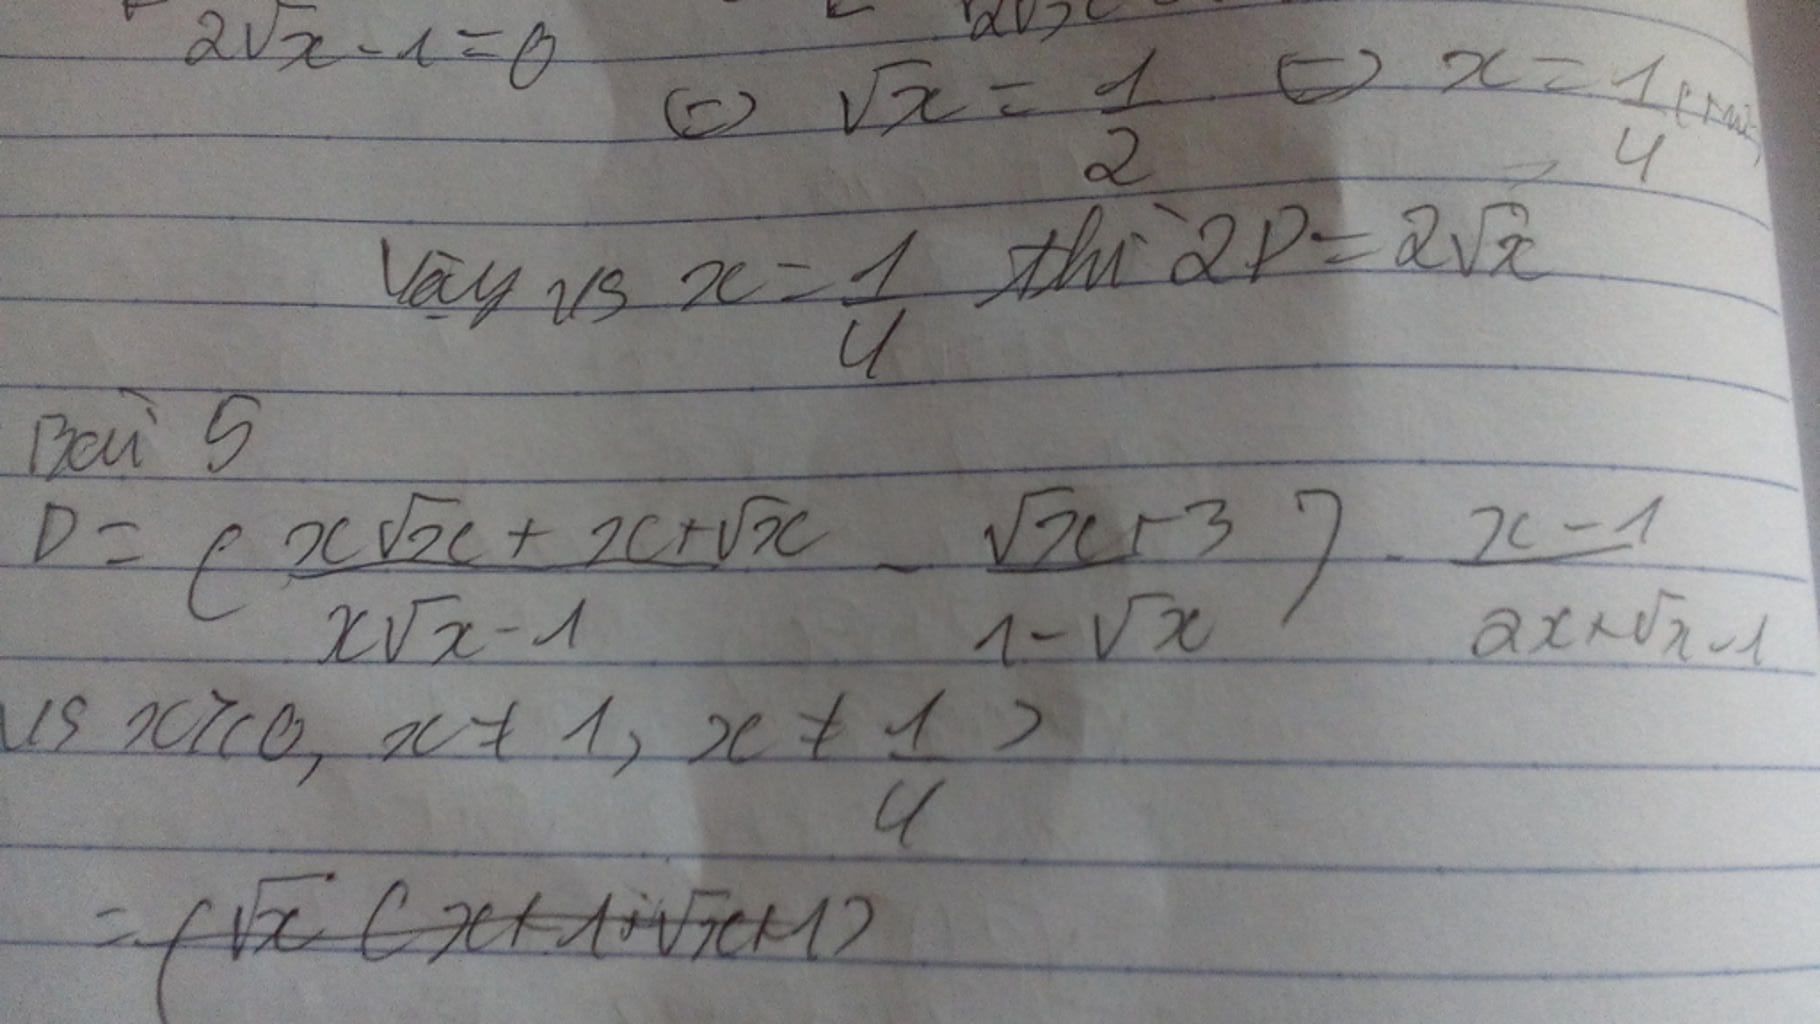 2√x - 1 = 0
⇔ √x = 1/2 ⇔ x = 1/4
Vậy vs x = 1/4 thì 2P = 2√x
Bài 5
P = ( (x√x + x + √x)/(x√x - 1) - (√x + 3)/(1 - √x) ) . (x - 1)/(2x + √x - 1)
vs x ≥ 0, x ≠ 1, x ≠ 1/4 )
= ( √x ( x + 1 + √x + 1 )